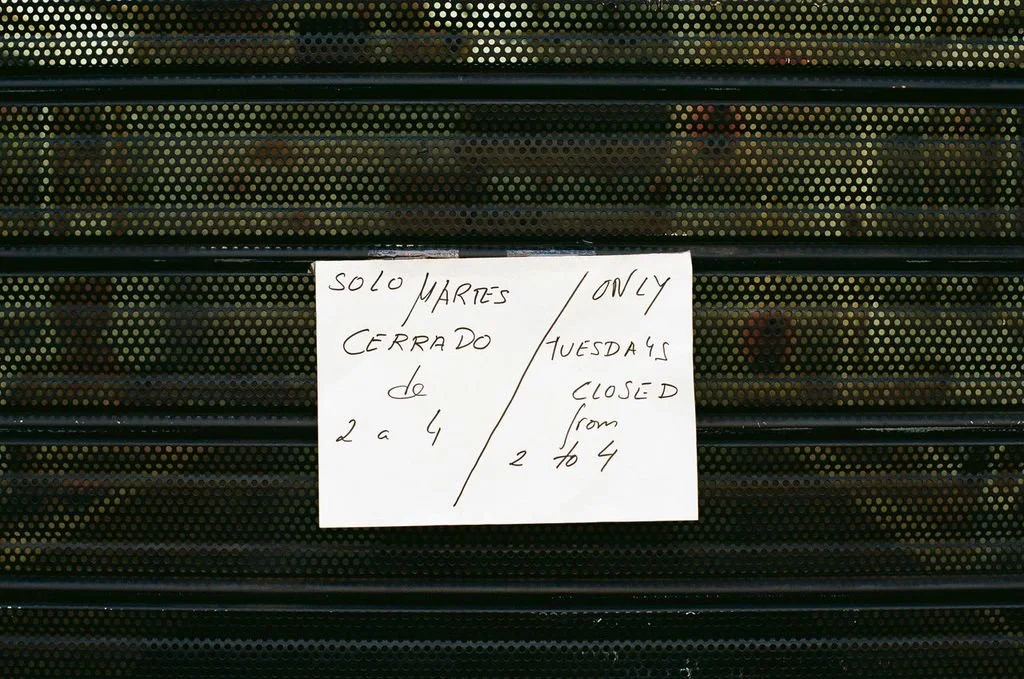 SOLO MARTES
CERRADO
de
2 a 4
ONLY
TUESDAYS
CLOSED
from
2 to 4